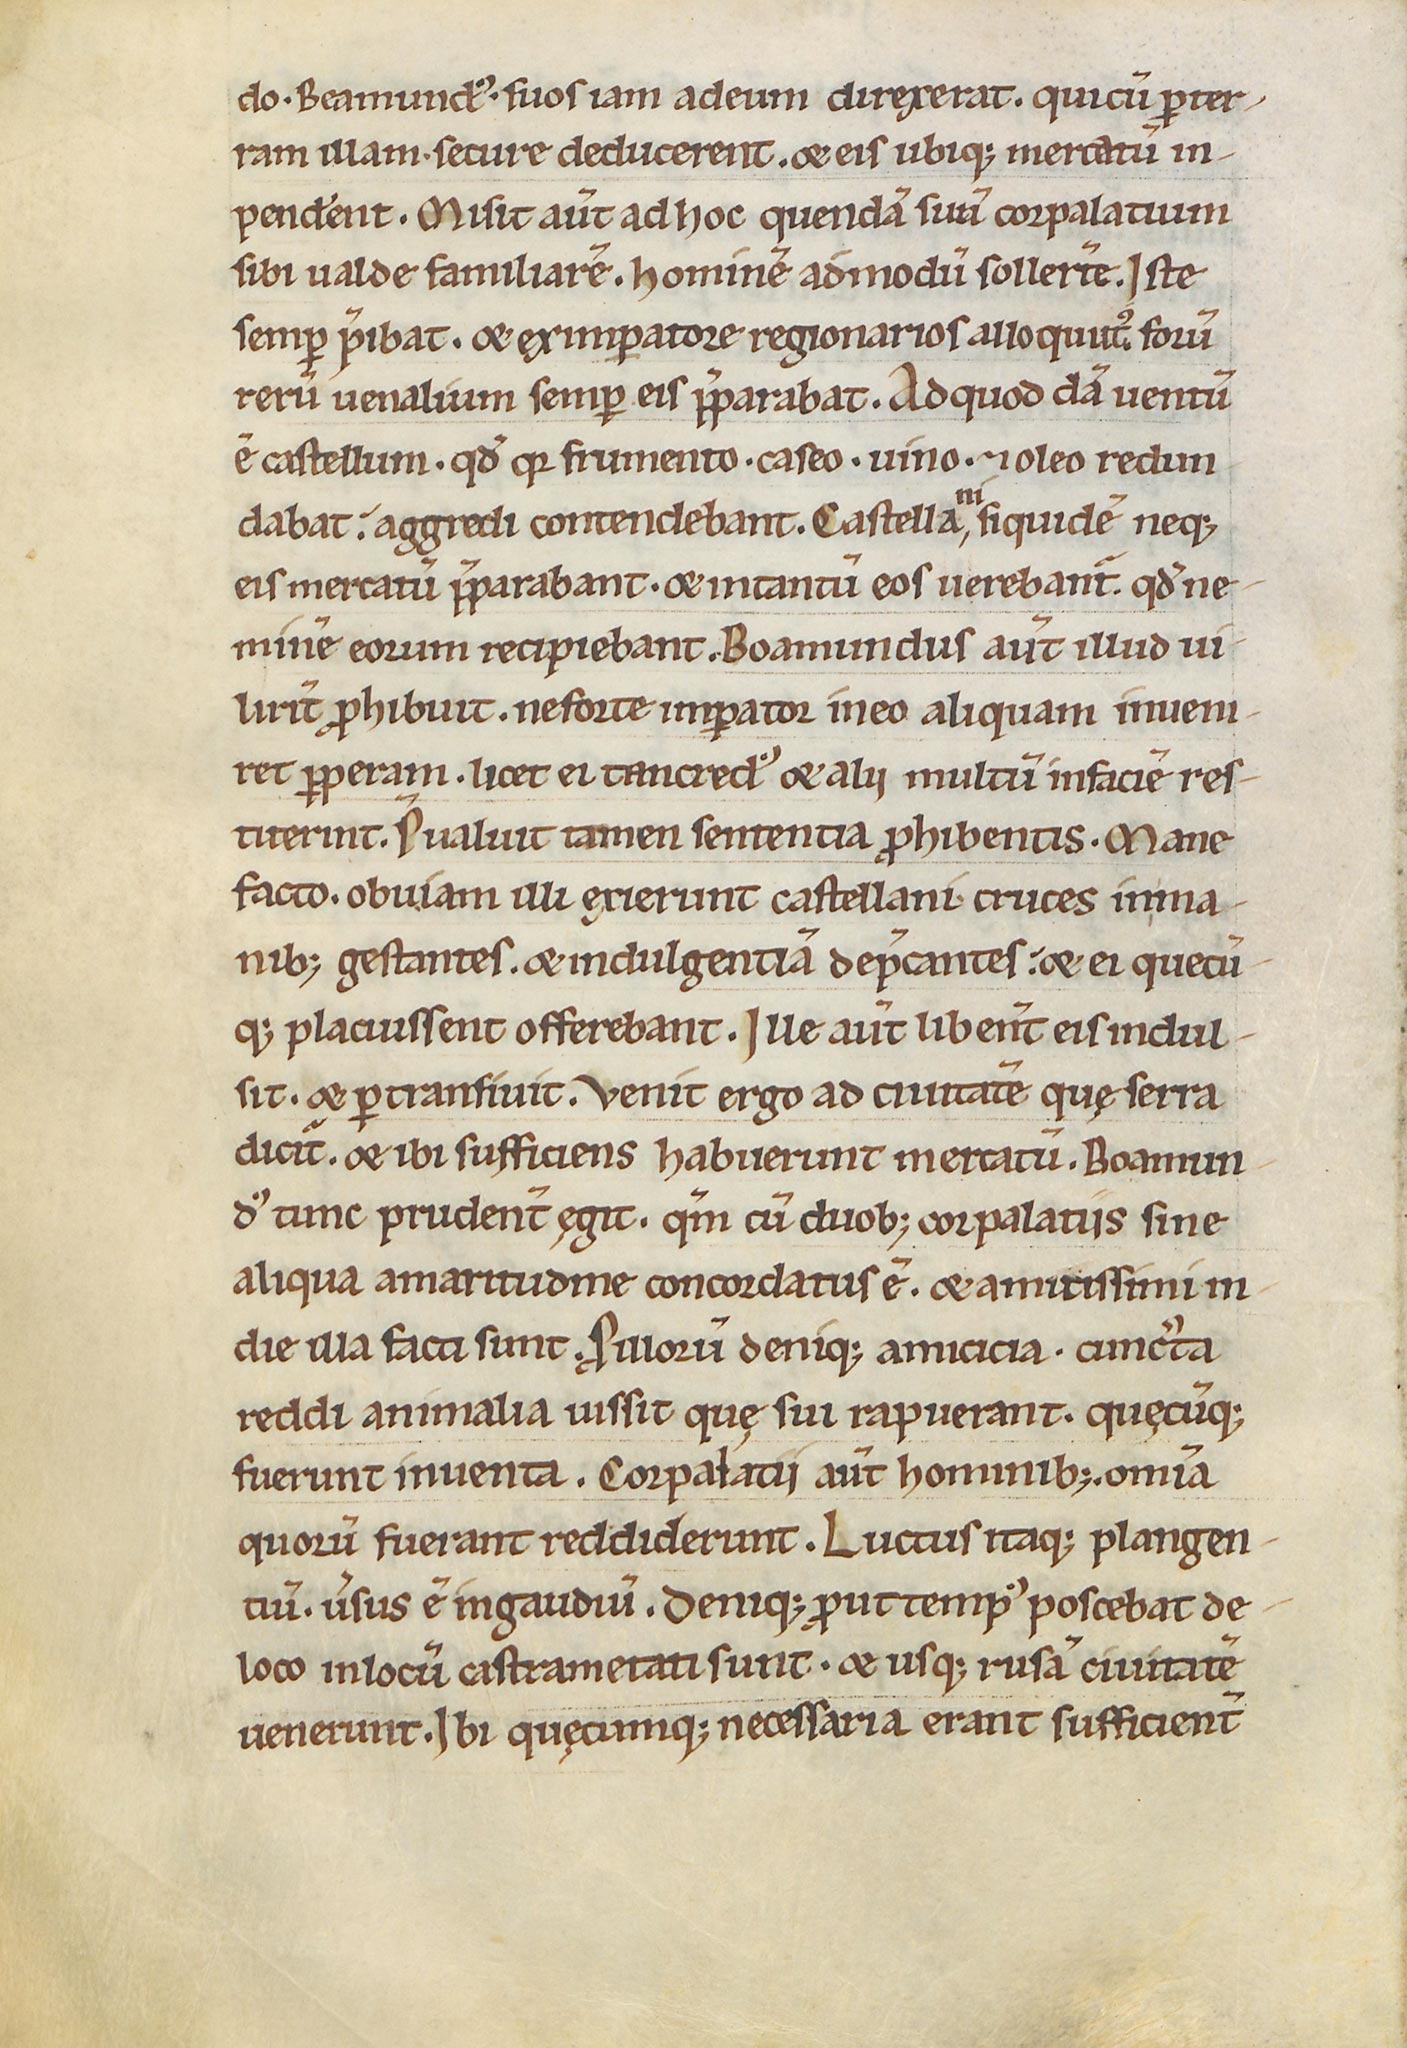 do. Beamundꝰ. suos iam adeum direxerat. quicū ꝑter-
ram illam. secure deducerent. & eis ubiq; mercatū in-
pend̄ent. Misit aūt ad hoc quendā suū corpalatium
sibi ualde familiarē. hominē admodū sollertē. Iste
semꝑ p̄ibat. & ęx imꝑatore regionarios alloquutꝰ. forū
rerū uenalium semꝑ eis p̄parabat. Ad quoddā uentū
ē castellum. qd̄ qr frumento. caseo. uino. ⁊ oleo redun
dabat: aggredi contendebant. Castellani siquidē neq;
eis mercatū p̄parabant. & intantū eos uerebant̄. qd̄ ne-
minē eorum recipiebant. Boamundus aūt illud ui-
lirit̄ ꝓhibuit. ne forte imꝑator in eo aliquam inueni-
ret ꝑperam. licet ei tancredꝰ & alii multū infaciē res-
titerint. P̄ualuit tamen sententia ꝓhibentis. Mane
facto. obuiam illi ęxierunt castellani cruces inma-
nib; gestantes. & indulgentiā dep̄cantes: & ei quecū-
q; placuissent offerebant. Ille aūt libent̄ eis indul-
sit. & ꝑtransiuit. Venit ergo ad ciuitatē quę serra
dicit̄. & ibi sufficiens habuerunt mercatū. Boamun-
dꝰ tunc prudent̄ ęgit. qm̄ cū duob; corpalatiis sine
aliqua amaritudine concordatus ē. & amicissimi in-
die illa facti sunt. P̱ illorū deniq; amicicia. cuncta
reddi animalia iussit quę sui rapuerant. quęcūq;
fuerunt inuenta. Corpalatii aūt hominib;. omīa
quorū fuerant reddiderunt. Luctus itaq; plangen-
tiū. ūsus ē ingaudiū. Deniq; ꝓut tempꝰ poscebat de-
loco inlocū castrametati sunt. & usq; rusā ciuitatē
uenerunt. Ibi quęcumq; necessaria erant sufficient̄